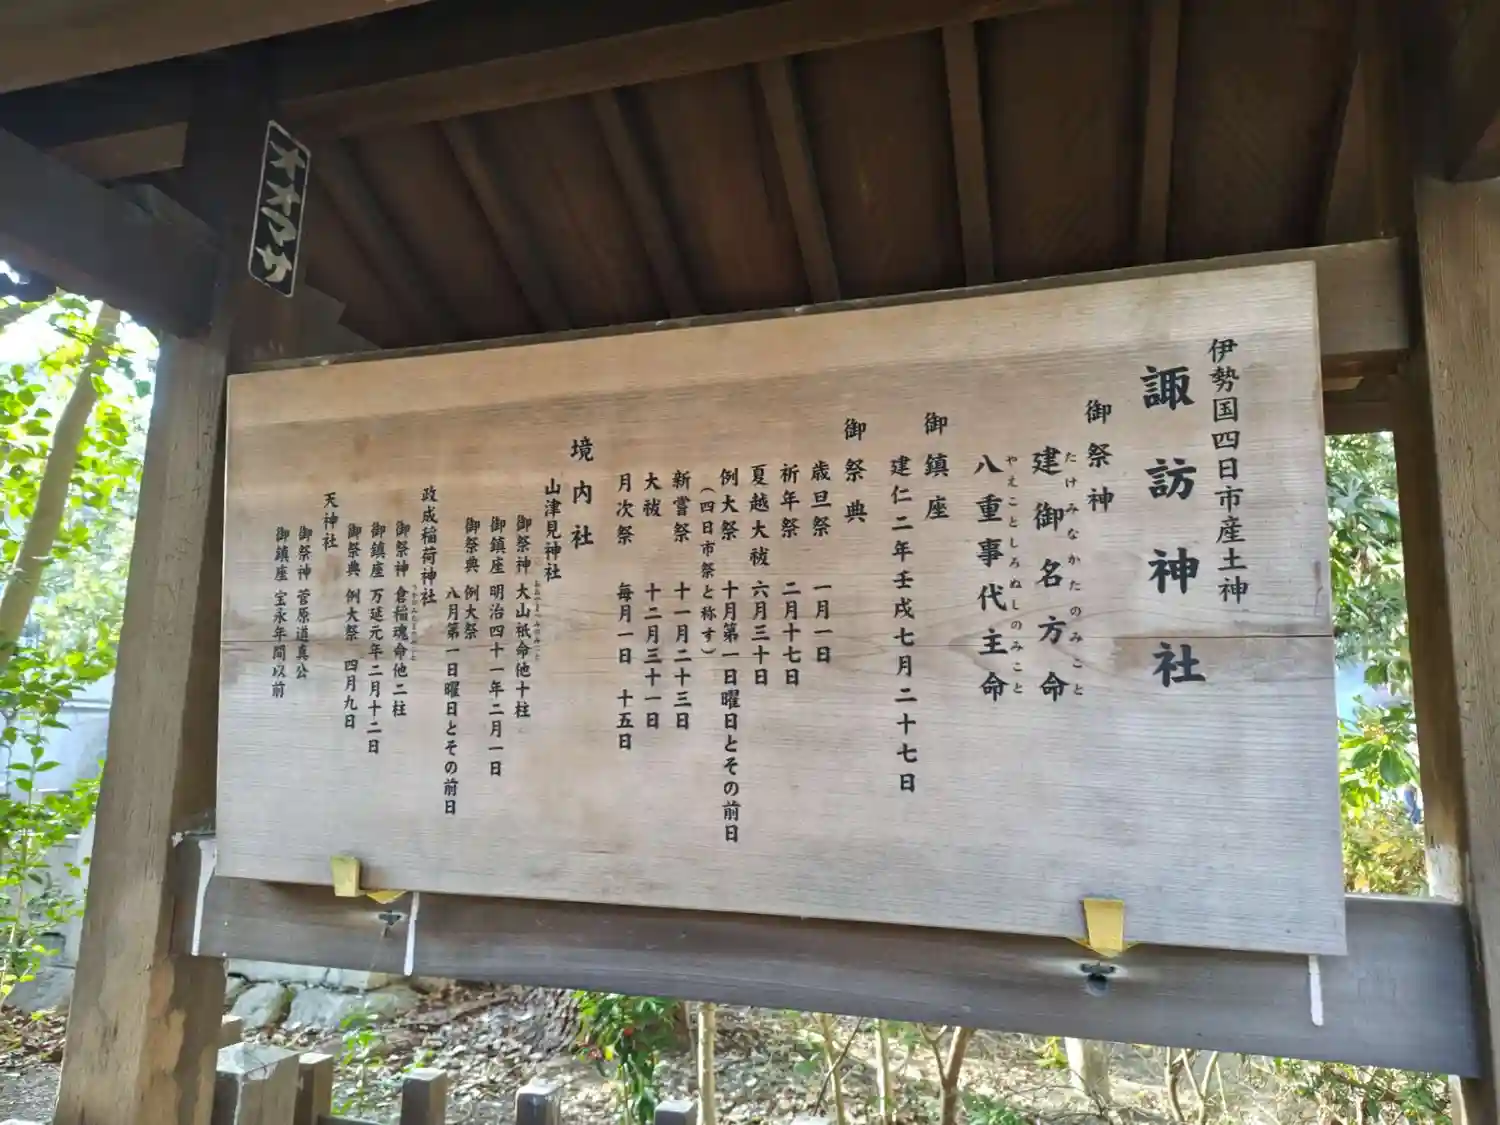 伊勢国四日市産土神
諏訪神社
御祭神
たけみなかたのみこと
建御名方命
やえことしろぬしのみこと
八重事代主命
御鎮座
建仁二年壬戌七月二十七日
御祭典
歳旦祭 一月一日
祈年祭 二月十七日
夏越大祓 六月三十日
例大祭 十月第一日曜日とその前日
(四日市祭と称す)
新嘗祭 十一月二十三日
大祓 十二月三十一日
月次祭 毎月一日 十五日
境内社
山津見神社
御祭神 大山祇命他十柱
御鎮座 明治四十一年二月一日
御祭典 例大祭
八月第一日曜日とその前日
政成稲荷神社
御祭神 倉稲魂命他二柱
御鎮座 万延元年二月十二日
御祭典 例大祭 四月九日
天神社
御祭神 菅原道真公
御鎮座 宝永年間以前